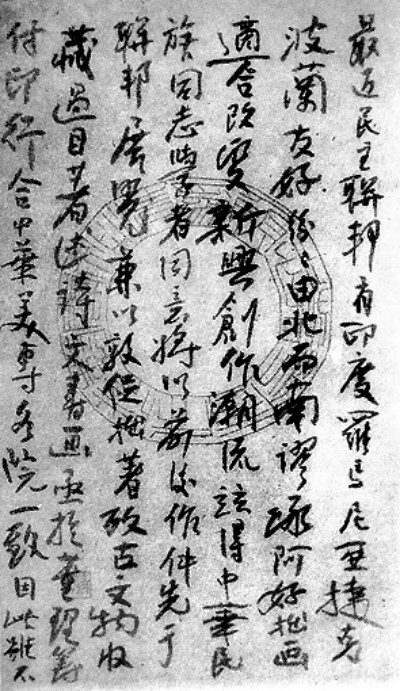 最近民主聯邦有印度羅馬尼亞捷克
波蘭友好紛紛由北而南謬承阿好拙画
適合改變新興創作潮流得中華民
族同志學者同意將以前後作件先于
聯邦展覽兼以敦促拙著攷古文物收
藏過目著述詩文書画亟於董理籌
付印行合中華美專各院一致因此雖不